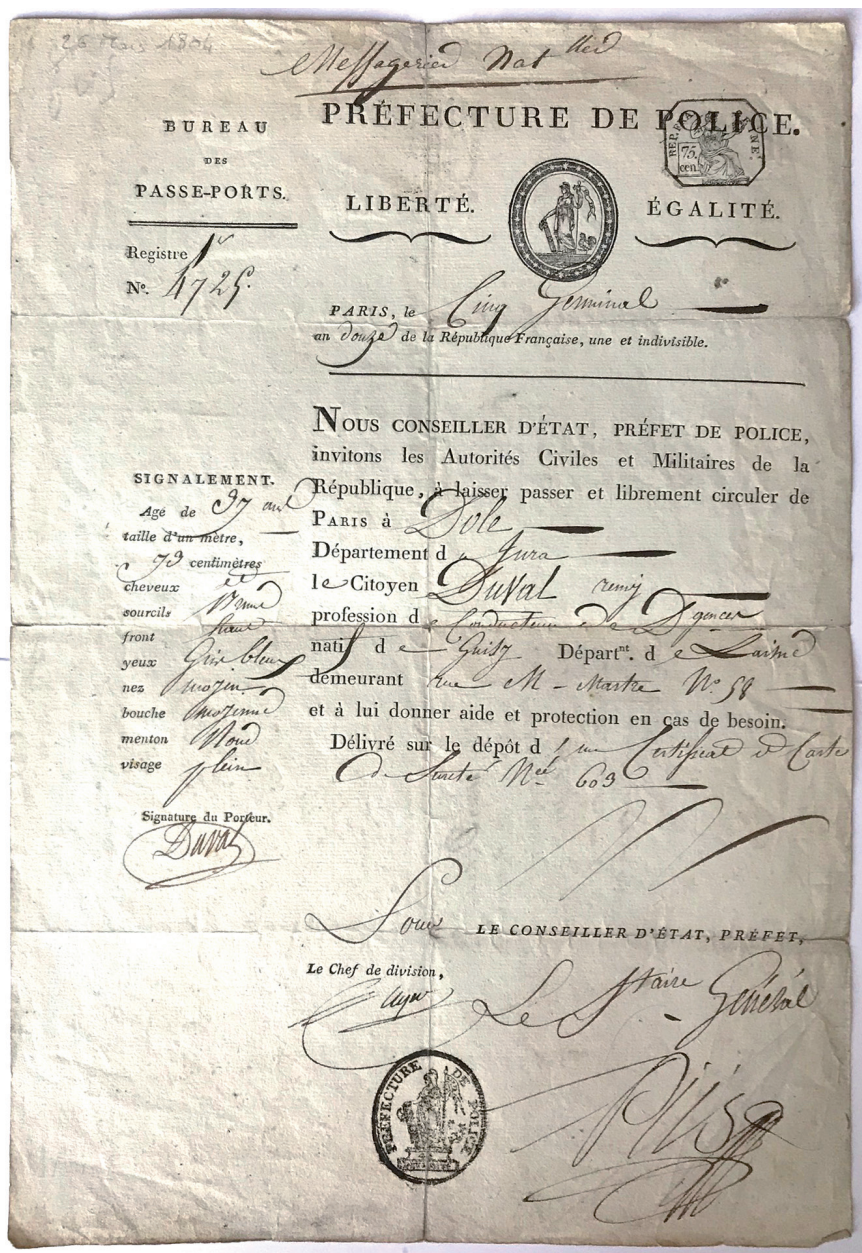 26 Mars 1804
Messageries Nat
PRÉFECTURE DE POLICE.
BUREAU
DES
PASSE-PORTS.
LIBERTÉ.
ÉGALITÉ.
75
cen.
Registre 1er
No. 4725.
PARIS, le Cinq Germinal
an douze de la République Française, une et indivisible.
NOUS CONSEILLER D'ÉTAT, PRÉFET DE POLICE,
invitons les Autorités Civiles et Militaires de la
République, à laisser passer et librement circuler de
PARIS à Dole
Département d u Jura
le Citoyen Duval remy
profession d e Conducteur de D
natif d e Guisy Départnt. d e Laisne
demeurant rue M-Martre No. 58
et à lui donner aide et protection en cas de besoin.
Délivré sur le dépôt d 'un Certificat et Carte
de Sureté 603
SIGNALEMENT.
Agé de 37 ans
taille d'un mètre,
73 centimètres
cheveux et
sourcils brun
front haut
yeux Gris bleus
nez moyen
bouche moyenne
menton Rond
visage plein
Signature du Porteur.
Duval
Pour LE CONSEILLER D'ÉTAT, PRÉFET,
Le Chef de division,
Le Staire Général
Piis
PRÉFECTURE DE POLICE